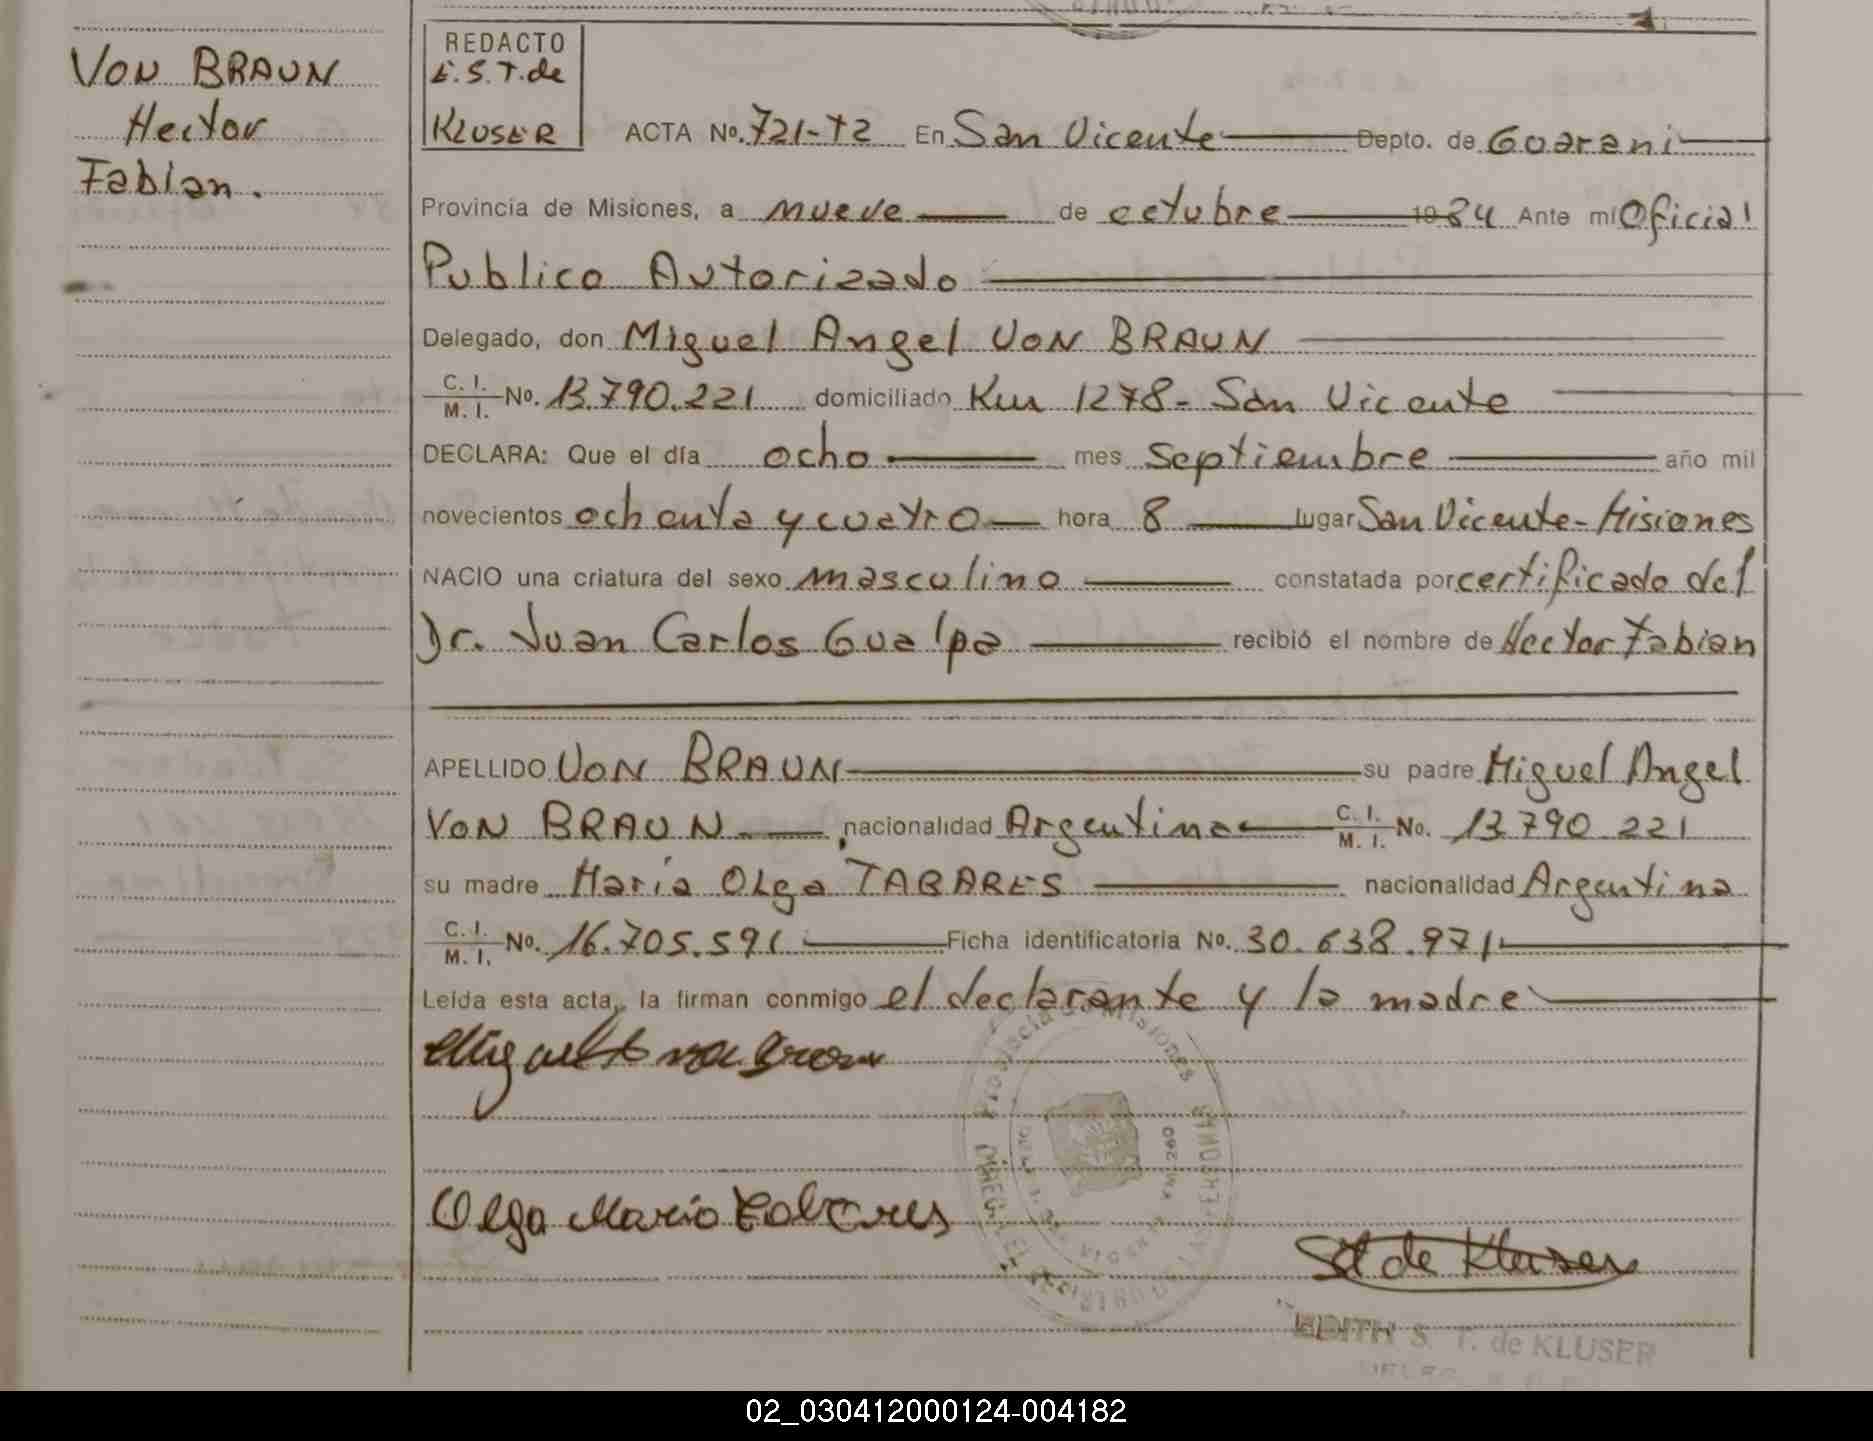 VON BRAUN
Hector
Fabian.
REDACTO
E.S.T. de
KLUSER
ACTA No. 721-T2 En San Vicente Depto. de Guarani
Provincia de Misiones, a nueve de octubre 1984 Ante mí Oficial
Publico Autorizado
Delegado, don Miguel Angel VON BRAUN
C. I. / M. I. No. 13.790.221 domiciliado Km 1278 - San Vicente
DECLARA: Que el día ocho mes septiembre año mil
novecientos ochenta y cuatro hora 8 lugar San Vicente - Misiones
NACIO una criatura del sexo masculino constatada por certificado del
Dr. Juan Carlos Gualpa recibió el nombre de Hector Fabian
APELLIDO VON BRAUN su padre Miguel Angel
VON BRAUN, nacionalidad Argentina C. I. / M. I. No. 13790 221
su madre Maria Olga TABARES nacionalidad Argentina
C. I. / M. I. No. 16.705.591 Ficha identificatoria No. 30.638.971
Leída esta acta, la firman conmigo el declarante y la madre
Provincia de Misiones
Olga Maria Tabares
S T de Kluser
EDITH S. T. de KLUSER
02_030412000124-004182